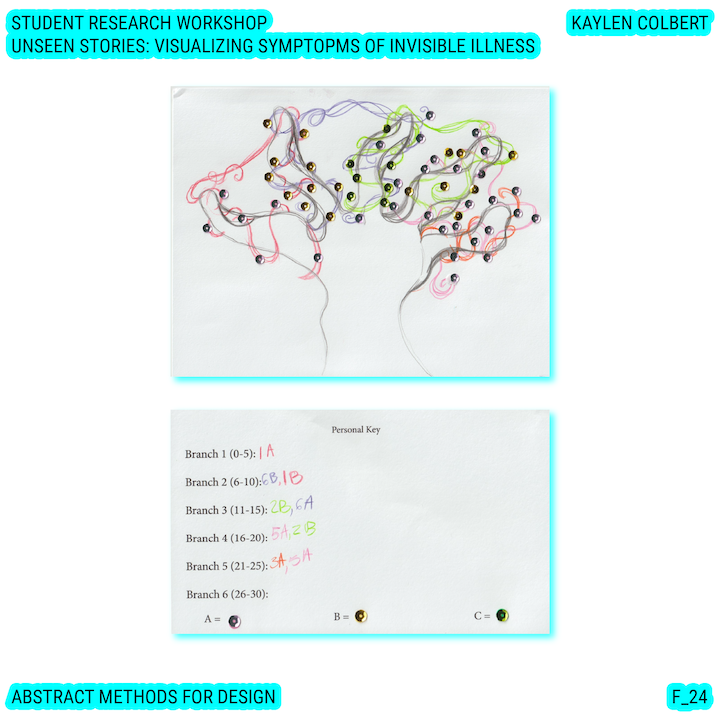 STUDENT RESEARCH WORKSHOP
KAYLEN COLBERT
UNSEEN STORIES: VISUALIZING SYMPTOPMS OF INVISIBLE ILLNESS
Personal Key
Branch 1 (0-5): 1A
Branch 2 (6-10): 6B, 1B
Branch 3 (11-15): 2B, 6A
Branch 4 (16-20): 5A, 2B
Branch 5 (21-25): 3A, 5A
Branch 6 (26-30):
A = B = C =
ABSTRACT METHODS FOR DESIGN
F_24